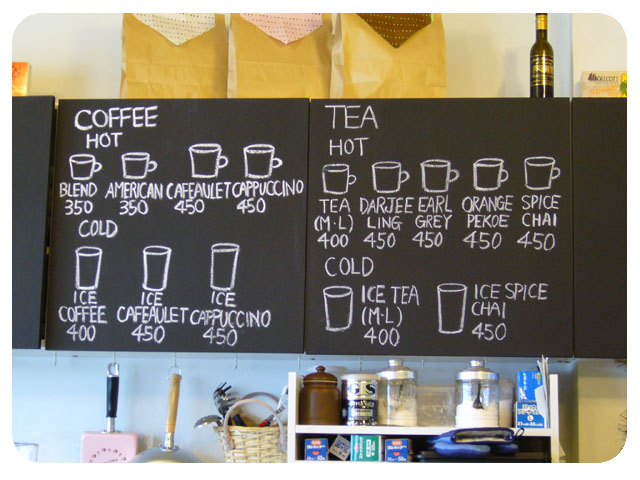 COFFEE
HOT
BLEND AMERICAN CAFEAULET CAPPUCCINO
350 350 450 450
COLD
ICE COFFEE ICE CAFEAULET ICE CAPPUCCINO
400 450 450
TEA
HOT
TEA (M·L) DARJEELING EARL GREY ORANGE PEKOE SPICE CHAI
400 450 450 450 450
COLD
ICE TEA (M·L) ICE SPICE CHAI
400 450